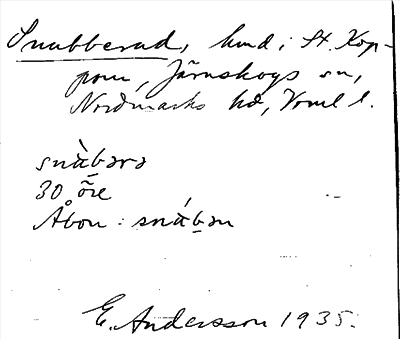 Snubberud, hmd i St. Kop-
pom, Järnskogs sn,
Nordmarks hd, Vrml l.
snàb̲ərə
30 öre
Åbon : snáb̲ən
E. Andersson 1935.